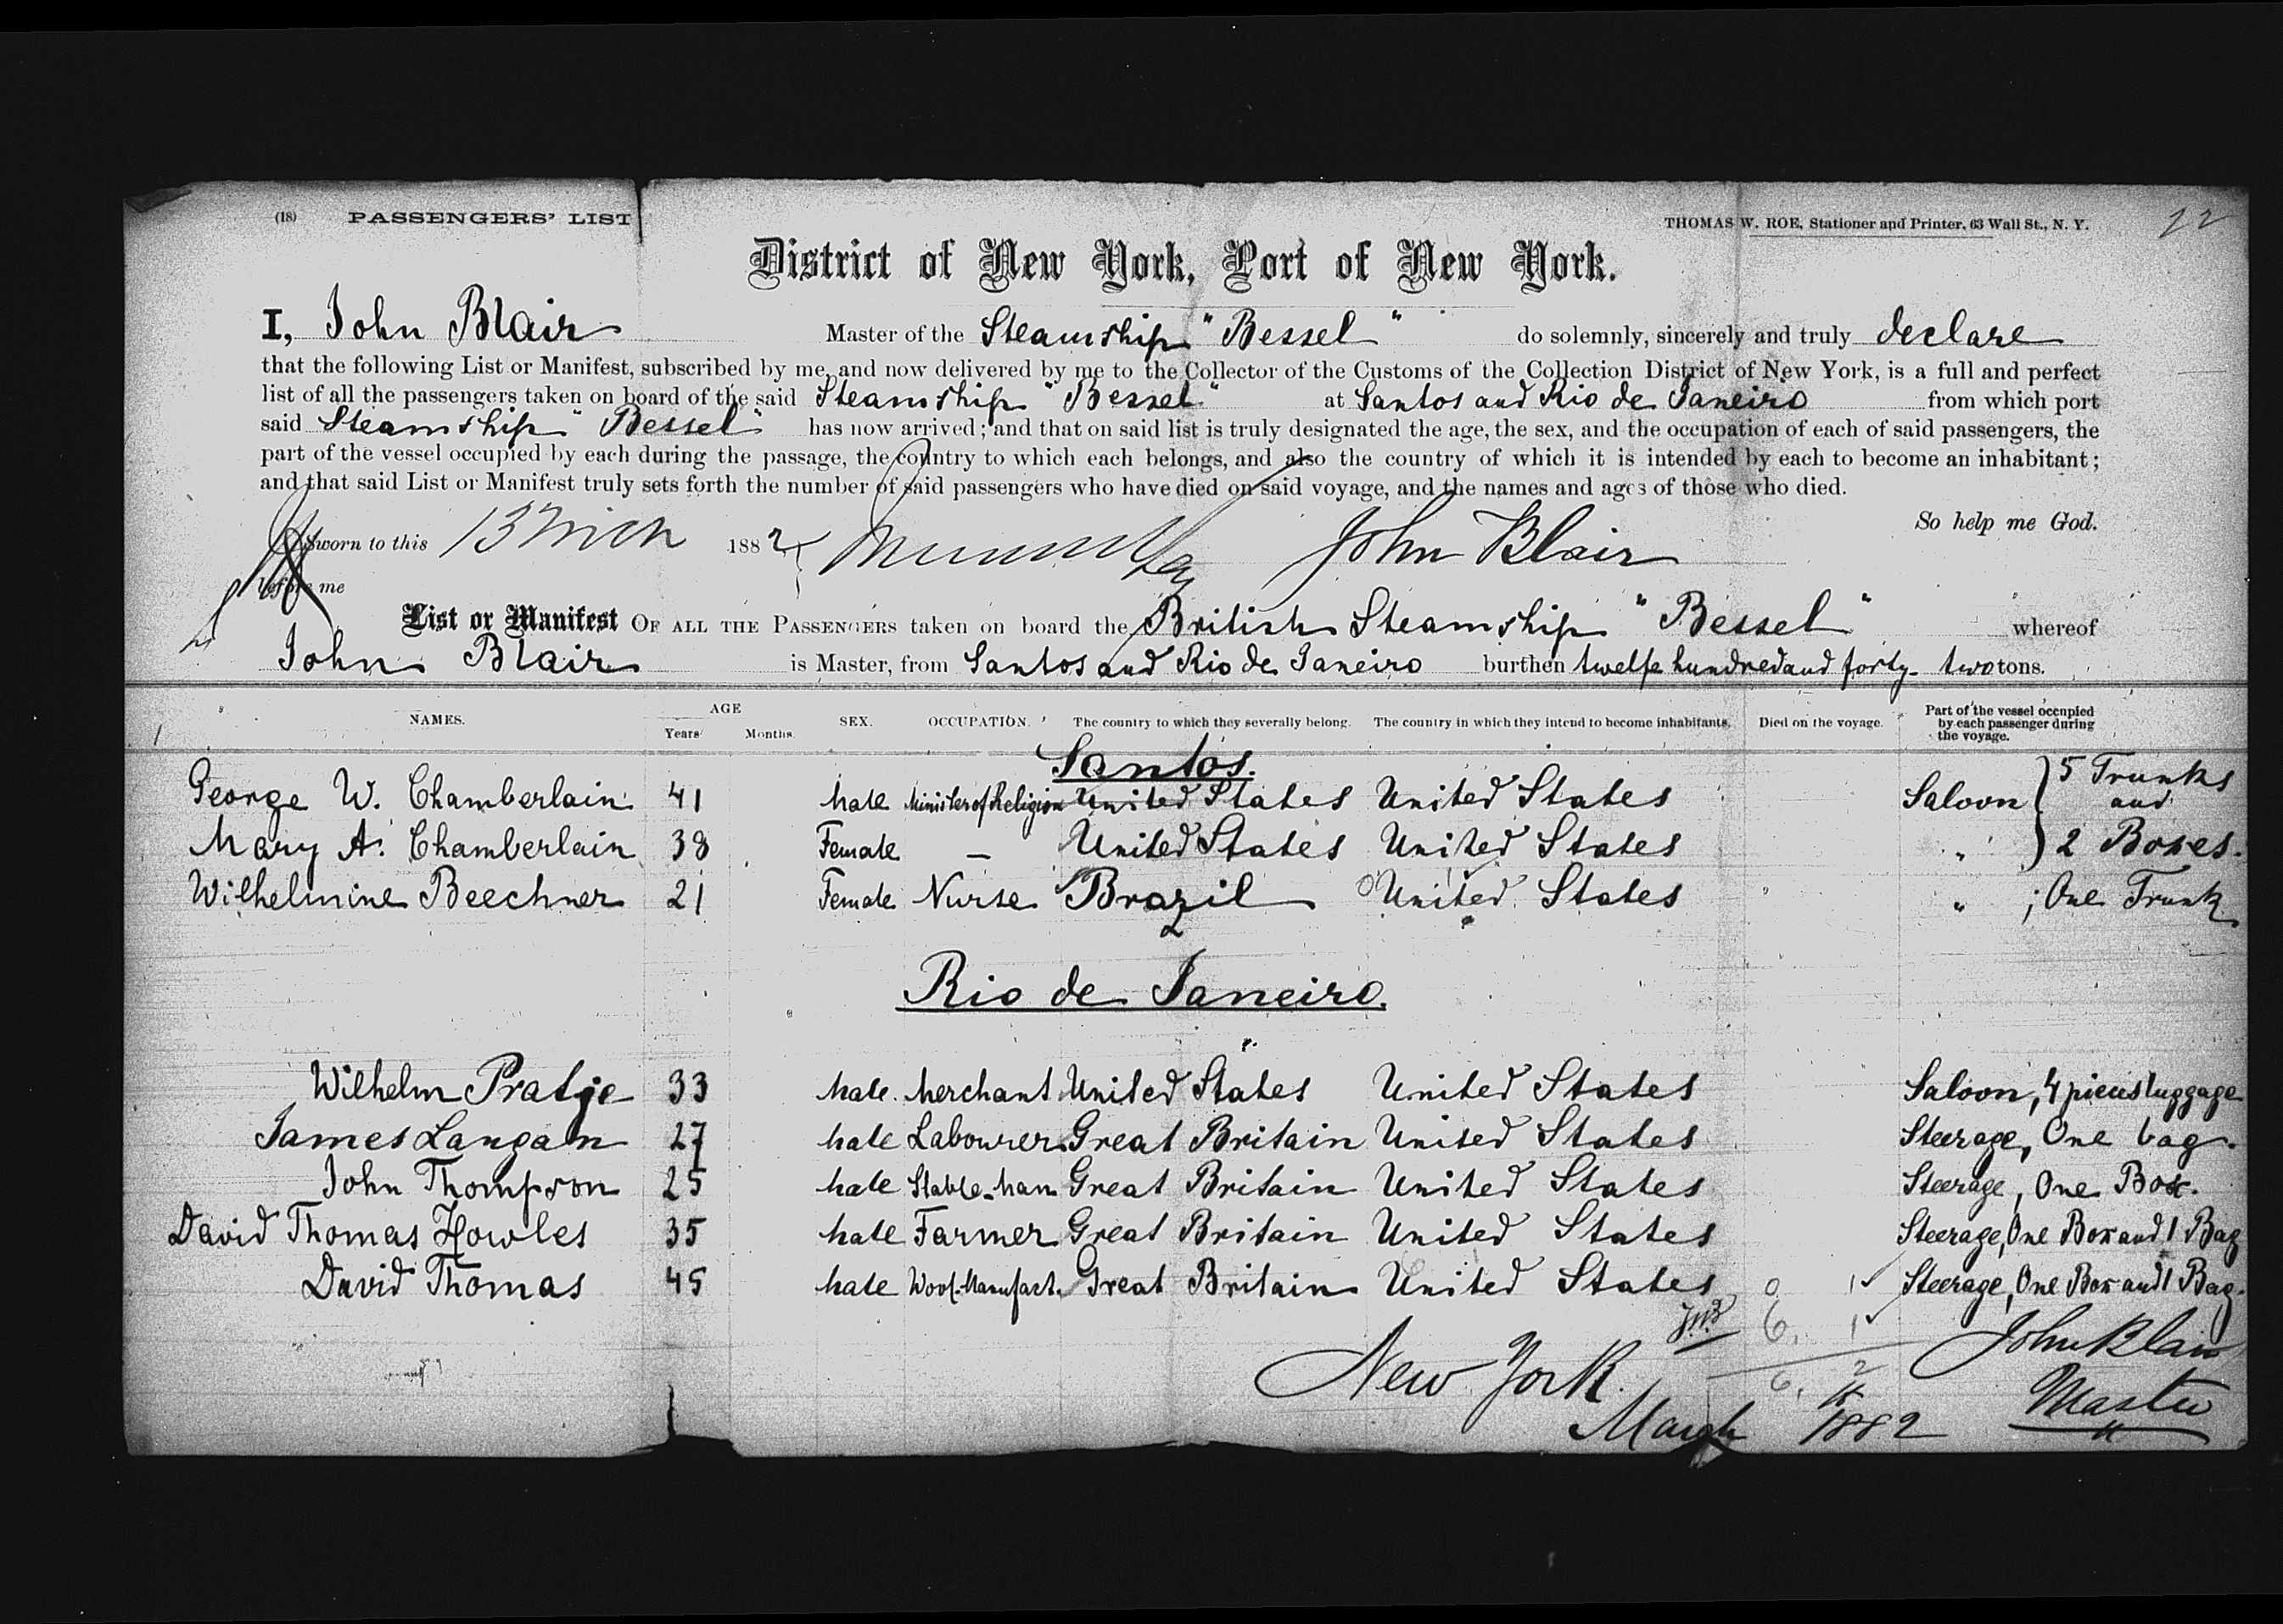 (18) PASSENGERS' LIST
THOMAS W. ROE, Stationer and Printer, 63 Wall St., N. Y.
District of New York, Port of New York.
I, John Blair Master of the Steamship "Bessel" do solemnly, sincerely and truly declare
that the following List or Manifest, subscribed by me, and now delivered by me to the Collector of the Customs of the Collection District of New York, is a full and perfect
list of all the passengers taken on board of the said Steamship "Bessel" at Santos and Rio de Janeiro from which port
said Steamship "Bessel" has now arrived; and that on said list is truly designated the age, the sex, and the occupation of each of said passengers, the
part of the vessel occupied by each during the passage, the country to which each belongs, and also the country of which it is intended by each to become an inhabitant;
and that said List or Manifest truly sets forth the number of said passengers who have died on said voyage, and the names and ages of those who died.
So help me God.
Sworn to this 13 1882 John Blair
before me
List or Manifest OF ALL THE PASSENGERS taken on board the British Steamship "Bessel" whereof
John Blair is Master, from Santos and Rio de Janeiro burthen twelfe hundred and forty-two tons.
NAMES. AGE Years Months. SEX. OCCUPATION. The country to which they severally belong. The country in which they intend to become inhabitants. Died on the voyage. Part of the vessel occupied by each passenger during the voyage.
Santos.
George W. Chamberlain 41 Male Minister of Religion United States United States Saloon 5 Trunks
and
Mary A. Chamberlain 38 Female — United States United States " 2 Boxes.
Wilhelmine Beechner 21 Female Nurse Brazil United States " ; One Trunk
Rio de Janeiro.
Wilhelm Pratje 33 Male. Merchant United States United States Saloon, 4 pieces luggage
James Langan 27 Male Labourer Great Britain United States Steerage, One bag.
John Thompson 25 Male Stable-Man Great Britain United States Steerage, One Box.
David Thomas Howles 35 Male Farmer Great Britain United States Steerage, One Box and 1 Bag
David Thomas 45 Male Woof-Manufact. Great Britain United States Steerage, One Box and 1 Bag.
John Blair
New York.
Master
March 1882